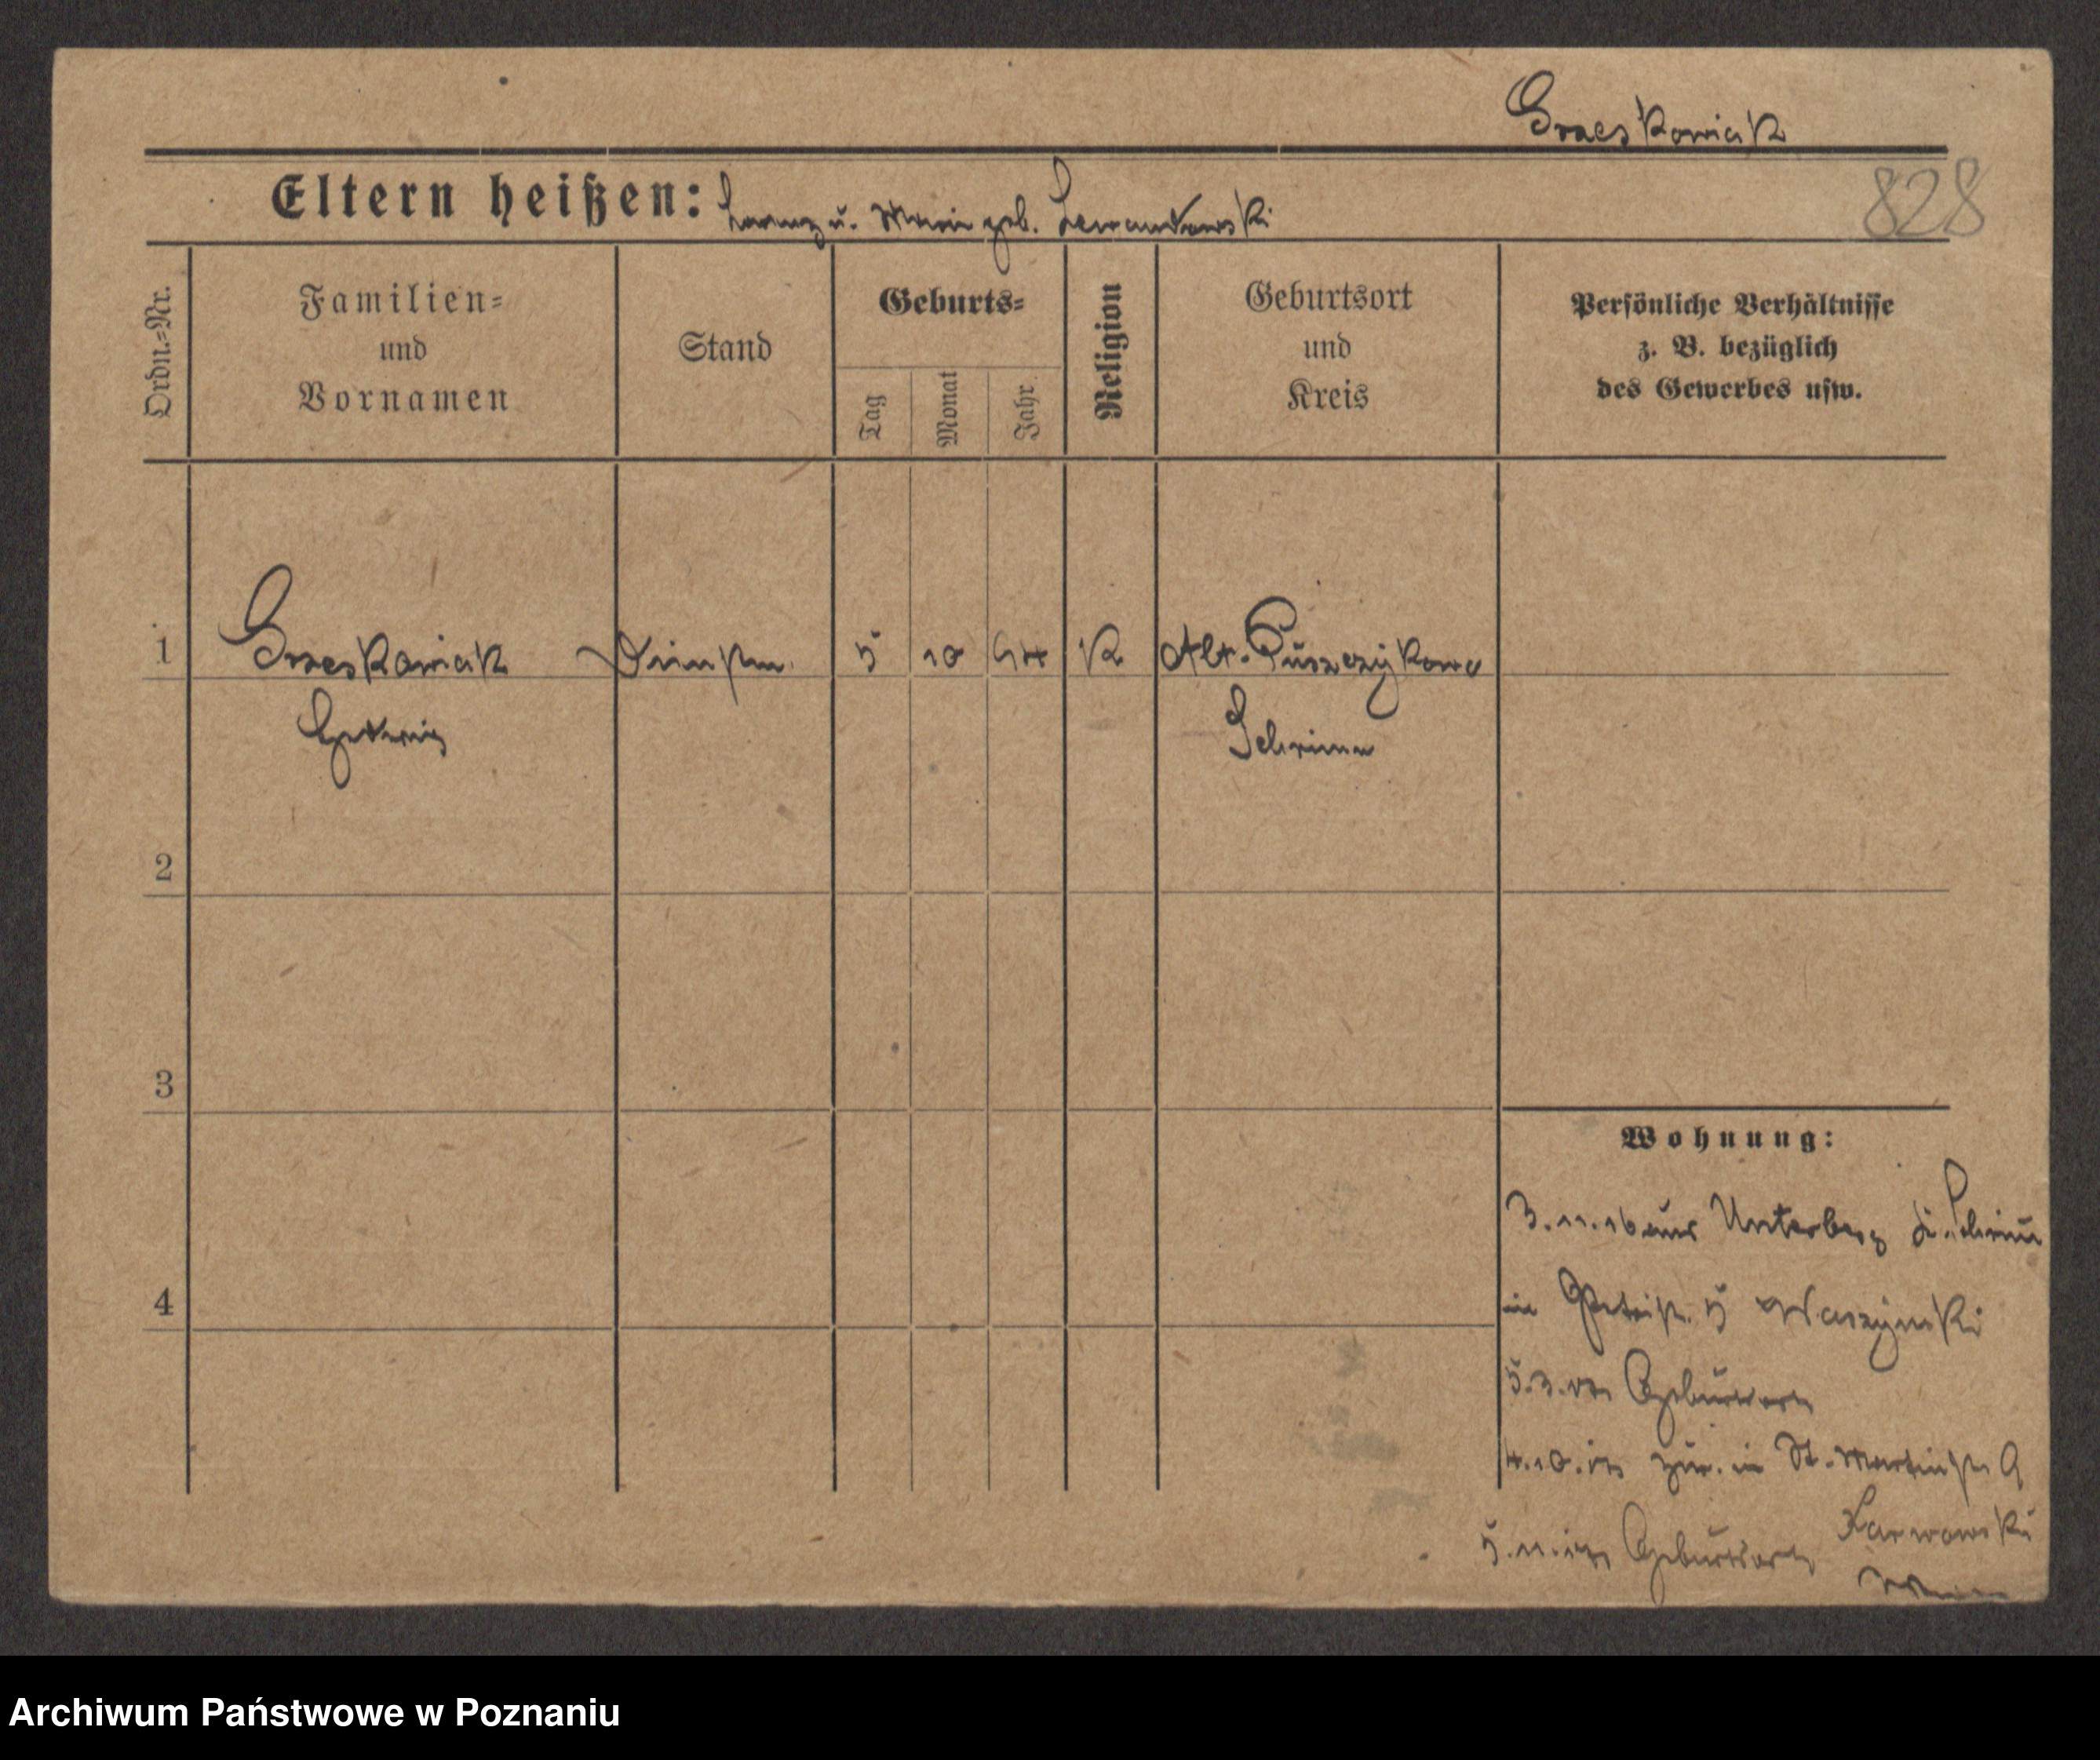 Graeskowiak
Eltern heißen: Lorenz u. Marie geb. Lewandowski
828
Ordn.=Nr.
Familien=
und
Vornamen
Stand
Geburts=
Tag
Monat
Jahr
Religion
Geburtsort
und
Kreis
Persönliche Verhältnisse
z. B. bezüglich
des Gewerbes usw.
1 Graeskowiak 5 10 94 K Alt-Puszczykowo
Hedwig Schrimm
2
3
4
Wohnung:
3.11.16 aus Unterberg Schrimm
in 5 Waszynski
5.3.17 Geburtsort
4.10.17 zur. in St. Martinstr 9
Karwowski
5.11.17 Geburtsort
Archiwum Państwowe w Poznaniu